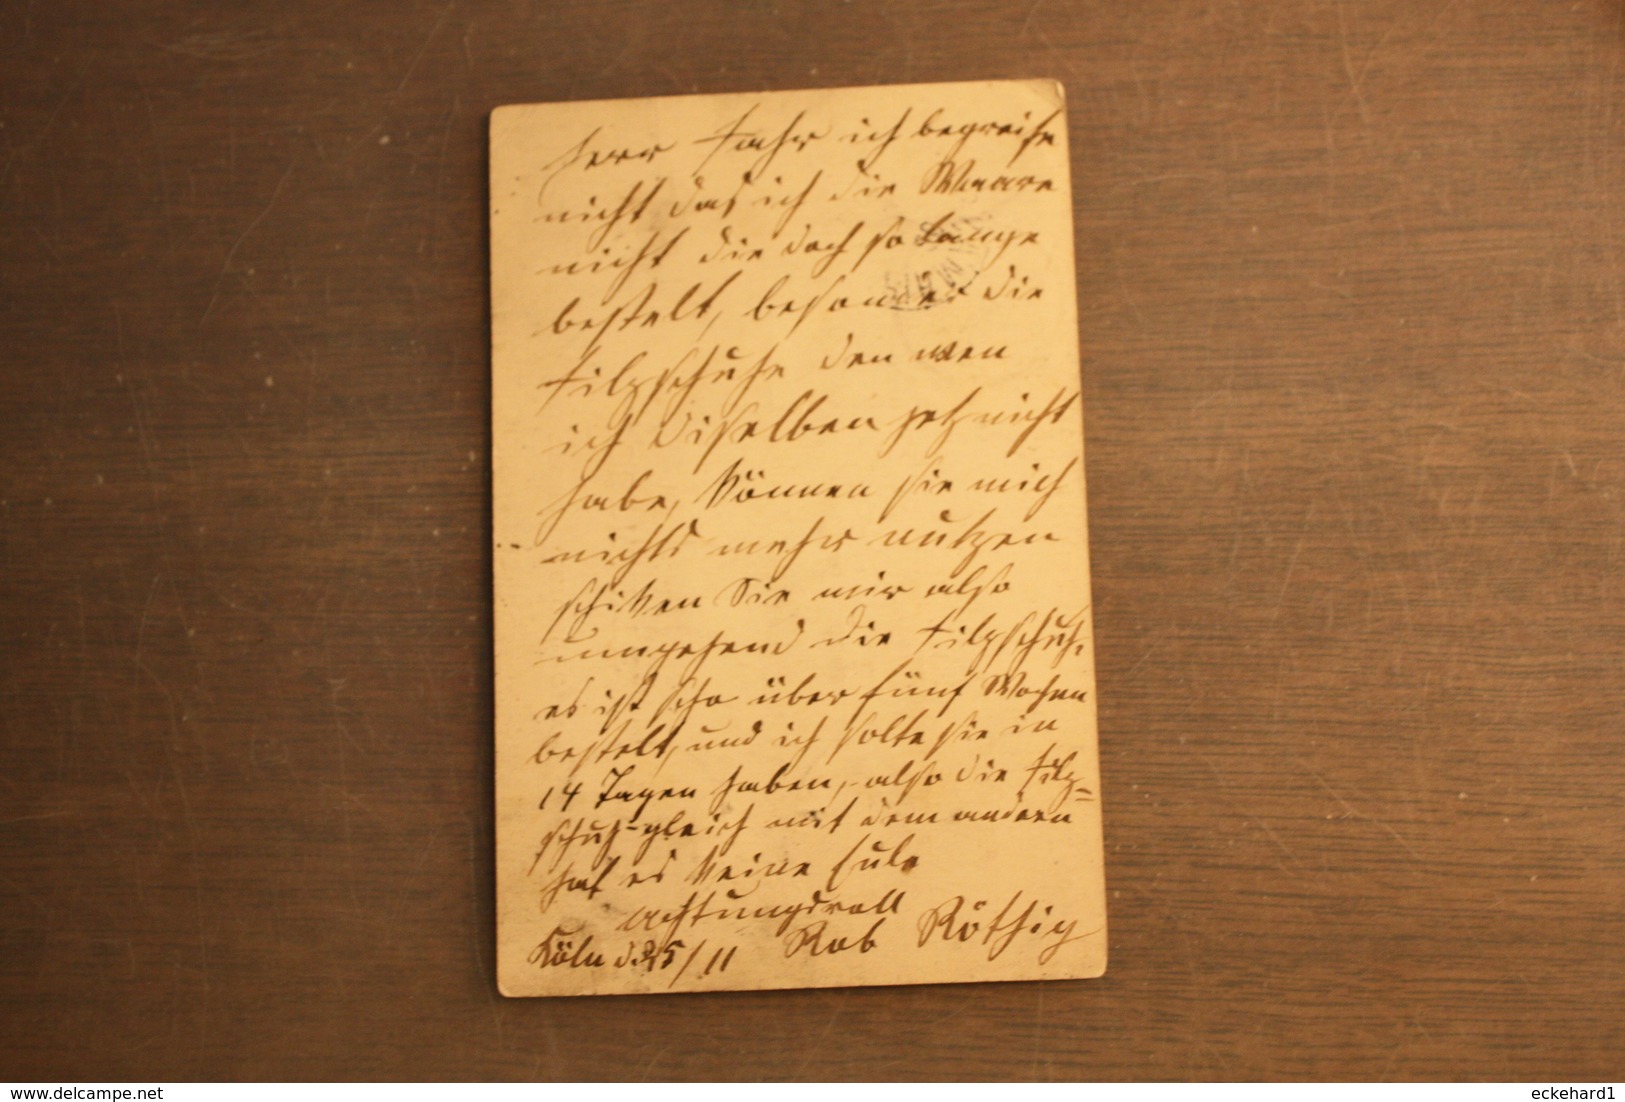 Herr Fahr ich begreife
nicht das ich die Waare
nicht die doch so lange
bestelt, besonder die
Filzschuhe den wen
ich diselben jetz nicht
habe, können sie mich
nichts mehr nutzen
schikken Sie mir also
umgehend die Filzschuh,
es ist scho über fünf Wochen
bestelt, und ich solte sie in
14 Tagen haben, also die Filz=
schuh gleich mit dem andern
hat es keine Eule
achtungsvoll
Köln d 25/11 Rob Röthig
www.delcampe.net
eckehard1